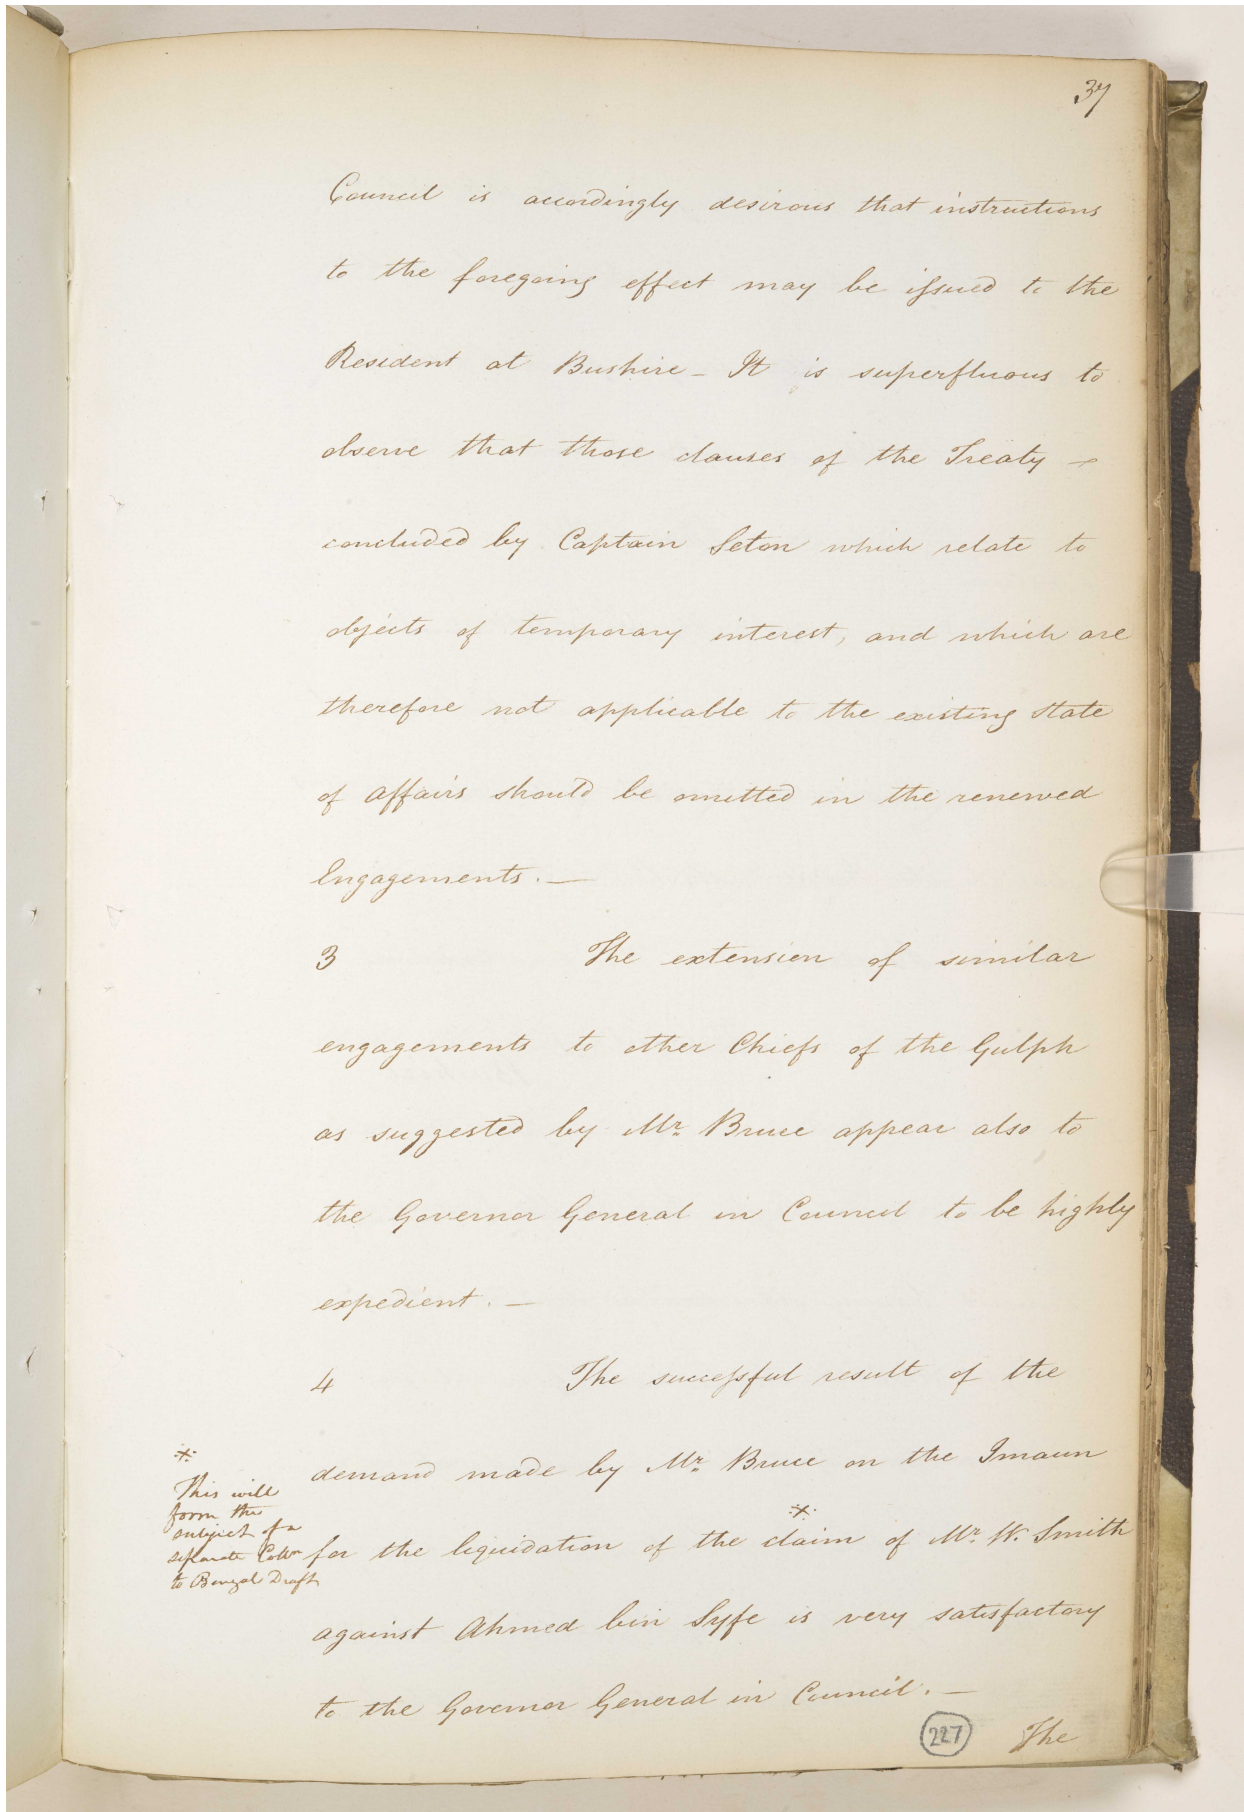 37
Council is accordingly desirous that instructions
to the foregoing effect may be issued to the
Resident at Bushire - It is superfluous to
observe that those clauses of the Treaty -
concluded by Captain Seton which relate to
objects of temporary interest, and which are
therefore not applicable to the existing state
of affairs should be omitted in the renewed
Engagements. -
3 The extension of similar
engagements to other Chiefs of the Gulph
as suggested by Mr. Bruce appear also to
the Governor General in Council to be highly
expedient. -
4 The successful result of the
demand made by Mr. Bruce on the Imaun
for the liquidation of the claim of Mr. W. Smith
against Ahmed bin Syfe is very satisfactory
to the Governor General in Council. -
This will
form the
subject of a
separate Colln
to Bengal Draft
227 The